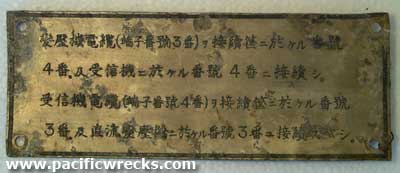 変壓機電纜(端子番號3番)ヲ接續筐ニ於ケル番號
4番、及受信機ニ於ケル番號 4番ニ接續シ。
受信機電纜(端子番號4番)ヲ接續筐ニ於ケル番號
3番、及直流變壓器ニ於ケル番號3番ニ接續スベシ。
www.pacificwrecks.com